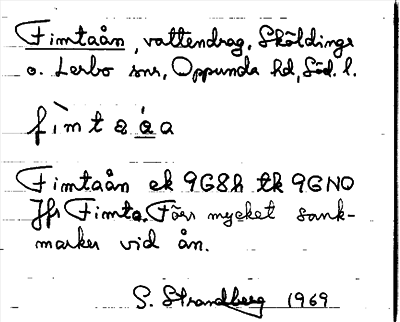 Fimtaån, vattendrag, Sköldinge
o. Lerbo snr, Oppunda hd, Söd. l.
fìmtaáa
Fimtaån ek 9G8h tk 9GNO
Jfr Fimta. Förr mycket sank-
marker vid ån.
S. Strandberg 1969